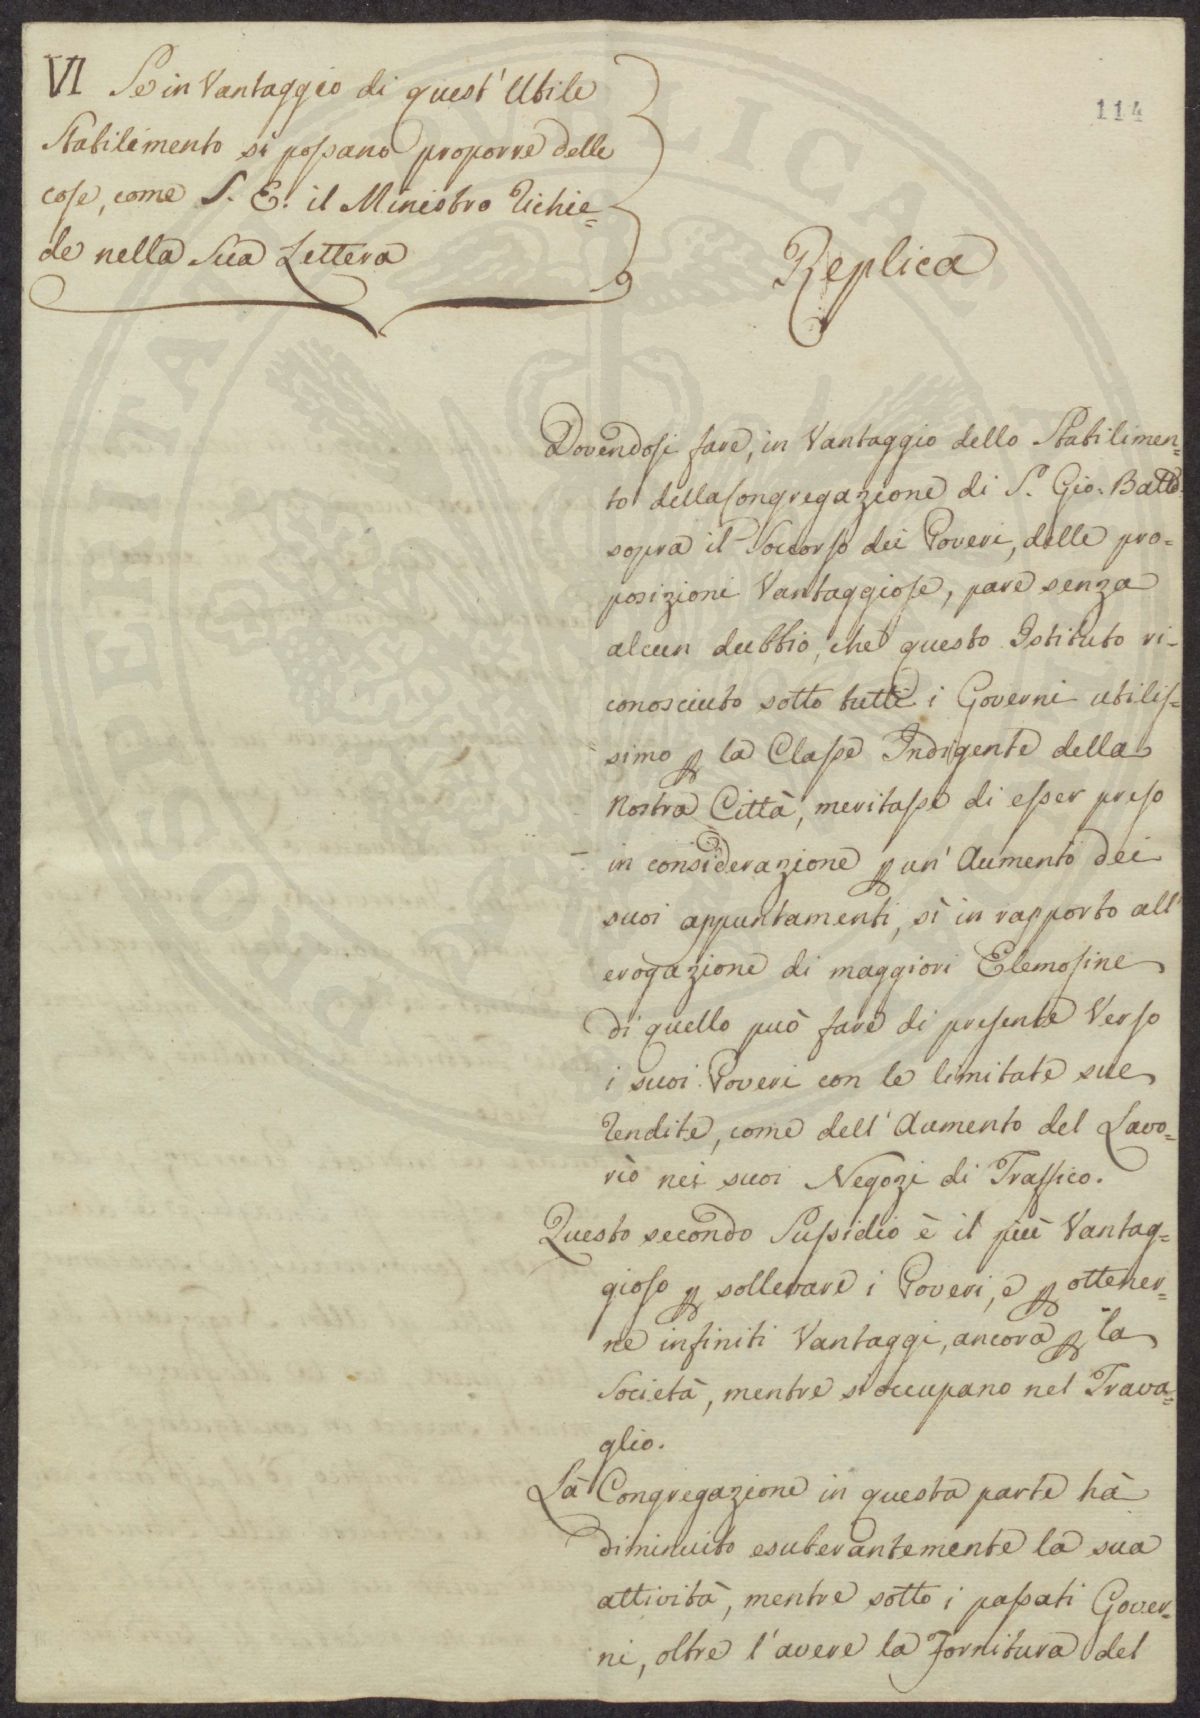 114
VI Se in Vantaggio di quest' Utile
Stabilimento si possano proporre delle
cose, come S. E. il Ministro richie=
de nella Sua Lettera
Replica
Dovendosi fare, in Vantaggio dello Stabilimen=
to della Congregazione di S. Gio: Batta
sopra il Soccorso dei Poveri, delle pro=
posizioni Vantaggiose, pare senza
alcun dubbio, che questo Istituto ri=
conosciuto sotto tutti i Governi utilis=
simo p la Classe Indigente della
Nostra Città, meritasse di esser preso
in considerazione p un' Aumento dei
suoi appuntamenti, sì in rapporto all'
erogazione di maggiori Elemosine
di quello può fare di presente Verso
i suoi Poveri con le limitate sue
rendite, come dell' Aumento del Lavo=
rio nei suoi Negozi di Traffico.
Questo secondo Sussidio è il più Vantag=
gioso p sollevare i Poveri, e p ottener=
ne infiniti Vantaggi, ancora p la
Società, mentre s'occupano nel Trava=
glio.
La Congregazione in questa parte hà
diminuito esuberantemente la sua
attività, mentre sotto i passati Gover=
ni, oltre l'avere la Fornitura del